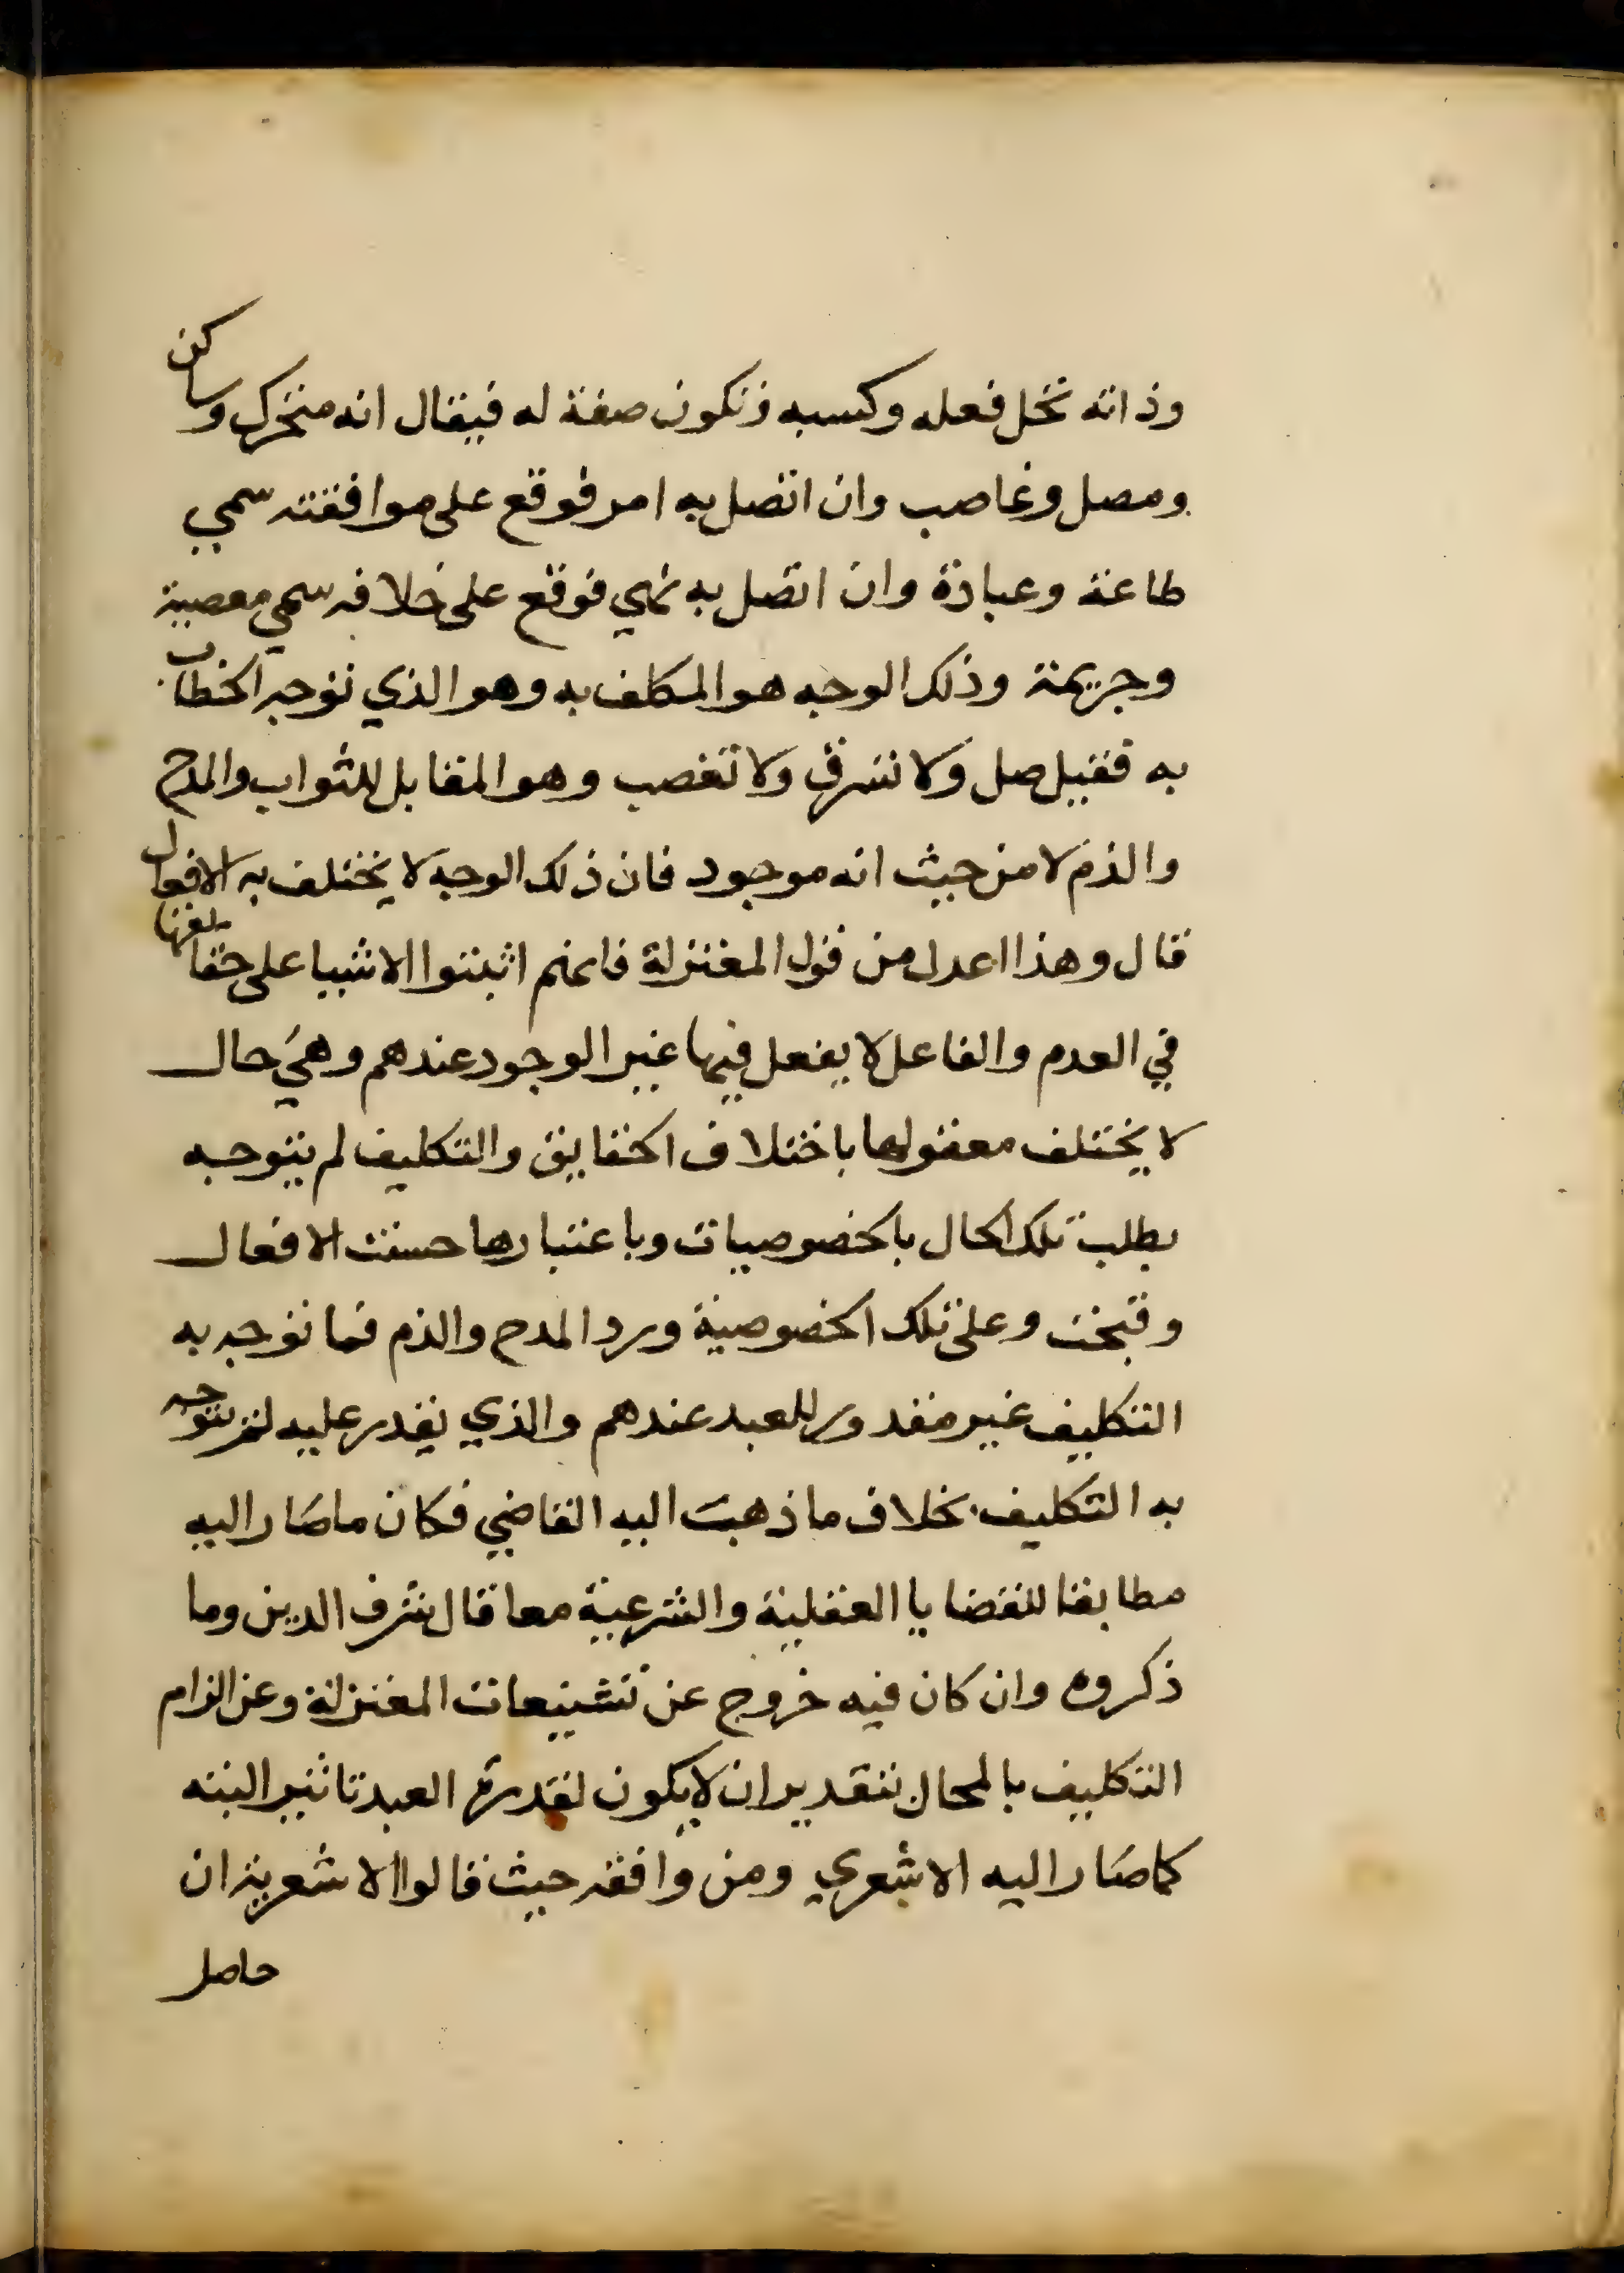 وذاته تحل فعله وكسبه فتكون صفة له فيقال انه متحرك وساكن
ومصل وغاصب وان اتصل به امر فوقع على موافقته سمي
طاعة وعبادة وان اتصل به نهي فوقع على خلافه سمي معصية
وجريمة وذلك الوجه هو المكلف به وهو الذي توجه الخطاب
به فقيل صل ولا تسرق ولا تغصب وهو المقابل للثواب والمدح
والذم لا من حيث انه موجود فان ذلك الوجه لا يختلف به الافعال
قال وهذا اعدل من قول المعتزلة فانهم اثبتوا الاشيا على حقايقها
في العدم والفاعل لا يفعل فيها غير الوجود عندهم وهي حال
لا يختلف معقولها باختلاف الحقايق والتكليف لم يتوجه
بطلب تلك الحال بالخصوصيات وباعتبارها حسنت الافعال
وقبحت وعلى تلك الخصوصية ورد المدح والذم فما توجه به
التكليف غير مقدور للعبد عندهم والذي يقدر عليه لم يتوجه
به التكليف بخلاف ما ذهبت اليه القاضي فكان ما صار اليه
مطابقا للقضايا العقلية والشرعية معا قال شرف الدين وما
ذكروه وان كان فيه خروج عن تشنيعات المعتزلة وعن الزام
التكليف بالمحال بتقدير ان لا يكون لقدرة العبد تاثير البته
كما صار اليه الاشعري ومن وافقه حيث قالوا الاشعرية ان
حاصل